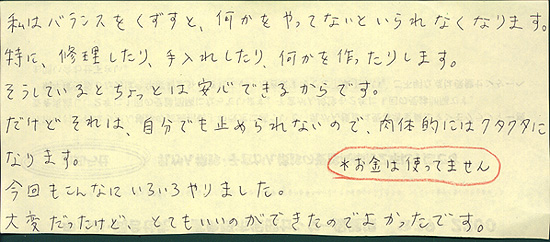 私はバランスをくずすと、何かをやってないといられなくなります。
特に、修理したり、手入れしたり、何かを作ったりします。
そうしているとちょっとは安心できるからです。
だけどそれは、自分でも止められないので、肉体的にはクタクタに
なります。
*お金は使ってません
今回もこんなにいろいろやりました。
大変だったけど、とてもいいのができたのでよかったです。